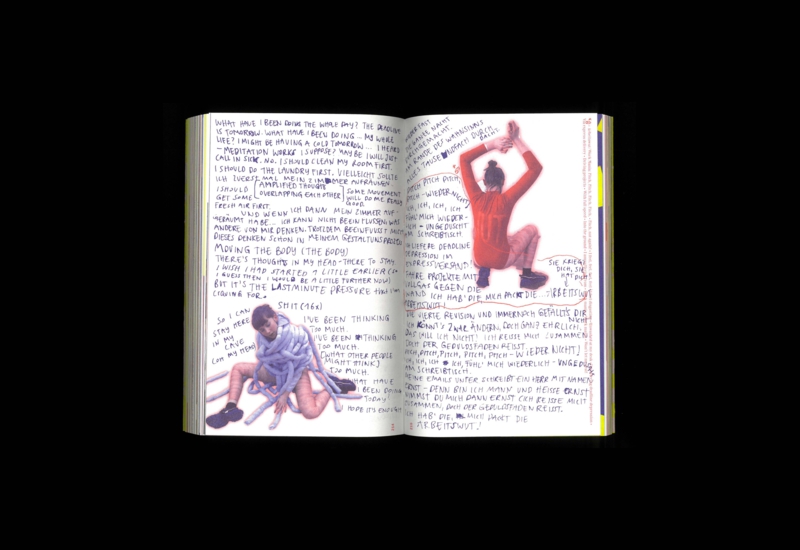 WHAT HAVE I BEEN DOING THE WHOLE DAY? THE DEADLINE
IS TOMORROW. WHAT HAVE I BEEN DOING ... MY WHOLE
LIFE? I MIGHT BE HAVING A COLD TOMORROW... I HEARD
- MEDITATION WORKS I SUPPOSE? MAYBE I WILL JUST
CALL IN SICK. NO. I SHOULD CLEAN MY ROOM FIRST.
I SHOULD DO THE LAUNDRY FIRST. VIELLEICHT SOLLTE
ICH ZUERST MAL MEIN ZIMMER AUFRÄUMEN.
I SHOULD
GET SOME
FRESH AIR FIRST.
AMPLIFIED THOUGHTS
OVERLAPPING EACH OTHER
SOME MOVEMENT
WILL DO ME REALLY
GOOD.
UND WENN ICH DANN MEIN ZIMMER AUF-
GERÄUMT HABE... ICH KANN NICHT BEEINFLUSSEN WAS
ANDERE VON MIR DENKEN. TROTZDEM BEEINFLUSST MICH
DIESES DENKEN SCHON IN MEINEM GESTALTUNGSPROZESS
MOVING THE BODY (THE BODY)
THERE'S THOUGHTS IN MY HEAD - THERE TO STAY
I WISH I HAD STARTED A LITTLE EARLIER
I GUESS THEN I WOULD BE A LITTLE FURTHER NOW)
BUT IT'S THE LAST MINUTE PRESSURE THAT I'M
LIVING FOR.
SHIT (16x)
SO I CAN
STAY HERE
IN MY
CAVE
(OH MY HEAD)
I'VE BEEN THINKING
TOO MUCH.
I'VE BEEN THINKING
(WHAT OTHER PEOPLE
MIGHT THINK)
TOO MUCH.
WHAT HAVE
I BEEN DOING
TODAY?
HOPE IT'S ENOUGH
HIER FAST
DIE GANZE NACHT
AM RANDE DES WAHNSINNS
ALLES TAUSENDFACH DURCH-
DACHT
PITCH PITCH PITCH,
PITCH - WIEDER NICHT)
ICH, ICH, ICH, ICH
FÜHL' MICH WIEDER-
LICH - UNGEDUSCHT
AM SCHREIBTISCH
LIEFERE DEADLINE
DEPRESSION IM
EXPRESSVERSAND!
FAHRE PROJEKTE MIT
VOLLGAS GEGEN DIE
WAND ICH HAB' DIE, MICH PACKT DIE ... ARBEITSWUT
ARBEITSWUT!
SIE KRIEGT
DICH, SIE
HAT DICH
DIE VIERTE REVISION UND IMMERNOCH GEFÄLLT'S DIR
NICHT
ICH KÖNNT'S ZWAR ÄNDERN, DOCH GANZ EHRLICH,
DAS WILL ICH NICHT! ICH REISSE MICH ZUSAMMEN
DOCH DER GEDULDSFADEN REISST.
PITCH, PITCH, PITCH, PITCH, PITCH - WIEDER NICHT)
ICH, ICH, ICH, ICH, FÜHL' MICH WIEDERLICH - UNGEDUSCHT
AM SCHREIBTISCH.
MEINE EMAILS UNTERSCHREIBT EIN HERR MIT NAMEN
ERNST - DENN BIN ICH MANN UND HEISSE ERNST
NIMMST DU MICH DANN ERNST. ICH REISSE MICH
ZUSAMMEN, DOCH DER GEDULDSFADEN REISST.
ICH HAB' DIE, MICH PACKT DIE
ARBEITSWUT!